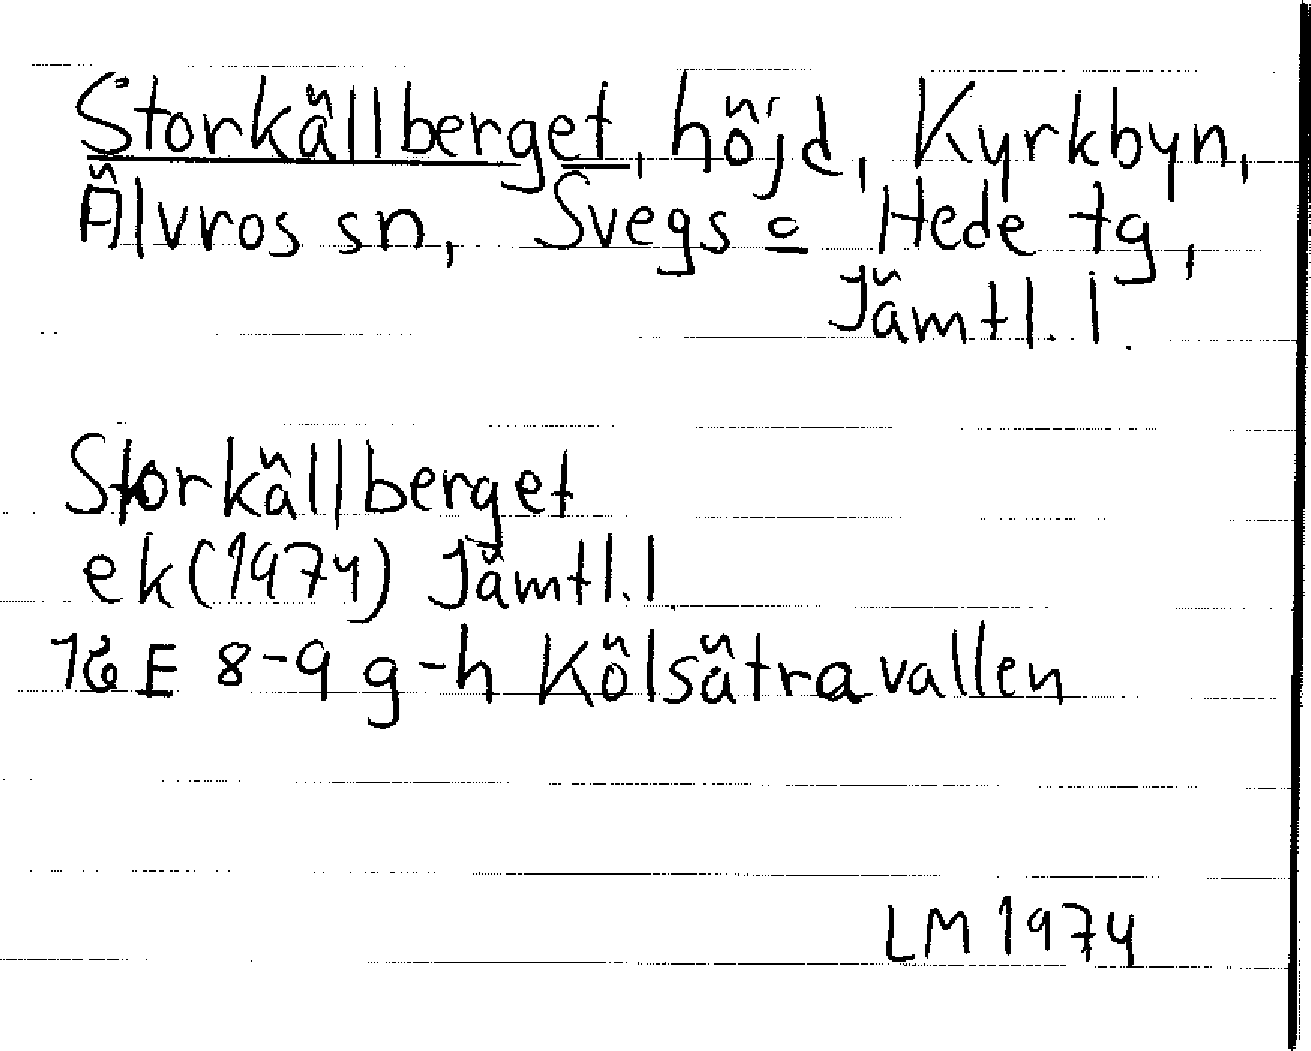 Storkällberget, höjd, Kyrkbyn,
Älvros sn, Svegs o Hede tg,
Jämtl. l.
Storkällberget
ek (1974) Jämtl. l.
16 E 8-9 g-h Kölsätravallen
LM 1974